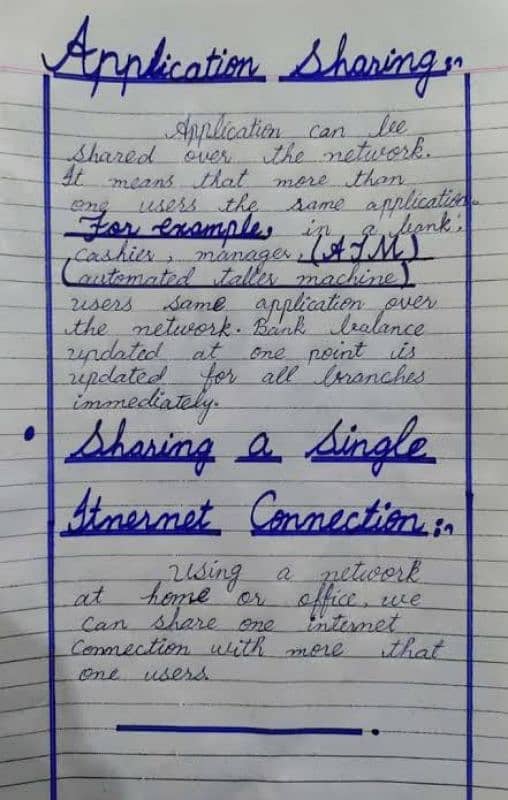 Application Sharing:-
Application can be
shared over the network.
It means that more than
one users the same application.
For example, in a bank,
cashier, manager, (ATM)
(automated taller machine)
users same application over
the network. Bank balance
updated at one point is
updated for all branches
immediately.
• Sharing a Single
Itnernet Connection:-
Using a network
at home or office, we
can share one internet
Connection with more that
one users.